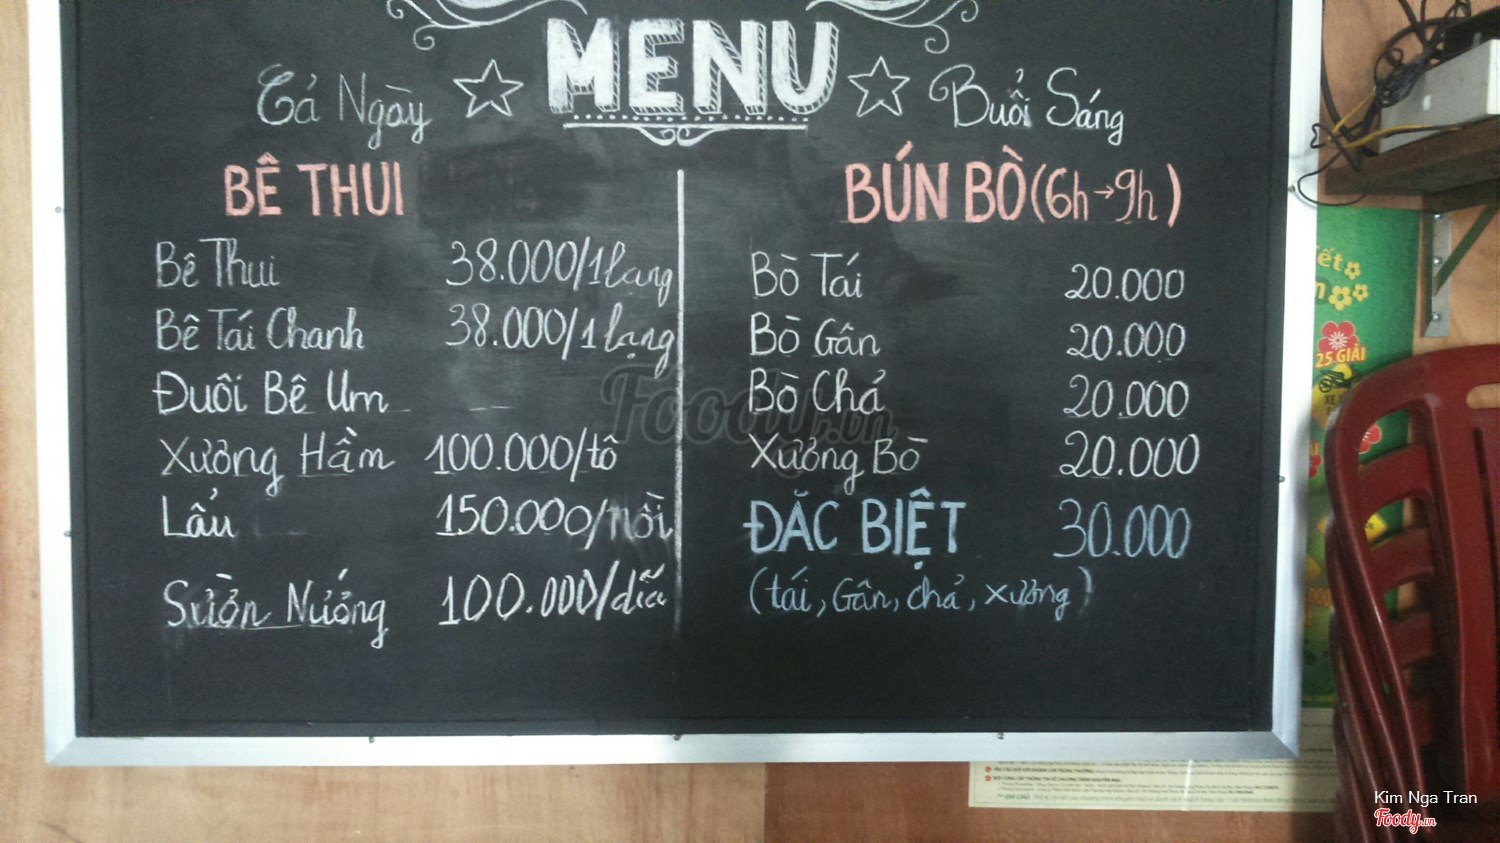 MENU
Cả Ngày
Buổi Sáng
BÊ THUI
Bê Thui 38.000/1 lạng
Bê Tái Chanh 38.000/1 lạng
Đuôi Bê Um
Xương Hầm 100.000/tô
Lẩu 150.000/nồi
Sườn Nướng 100.000/dĩa
BÚN BÒ (6h→9h)
Bò Tái 20.000
Bò Gân 20.000
Bò Chả 20.000
Xương Bò 20.000
ĐẶC BIỆT 30.000
(tái, Gân, chả, xương)
Foody.vn
25 GIẢI
Kim Nga Tran
Foody.vn